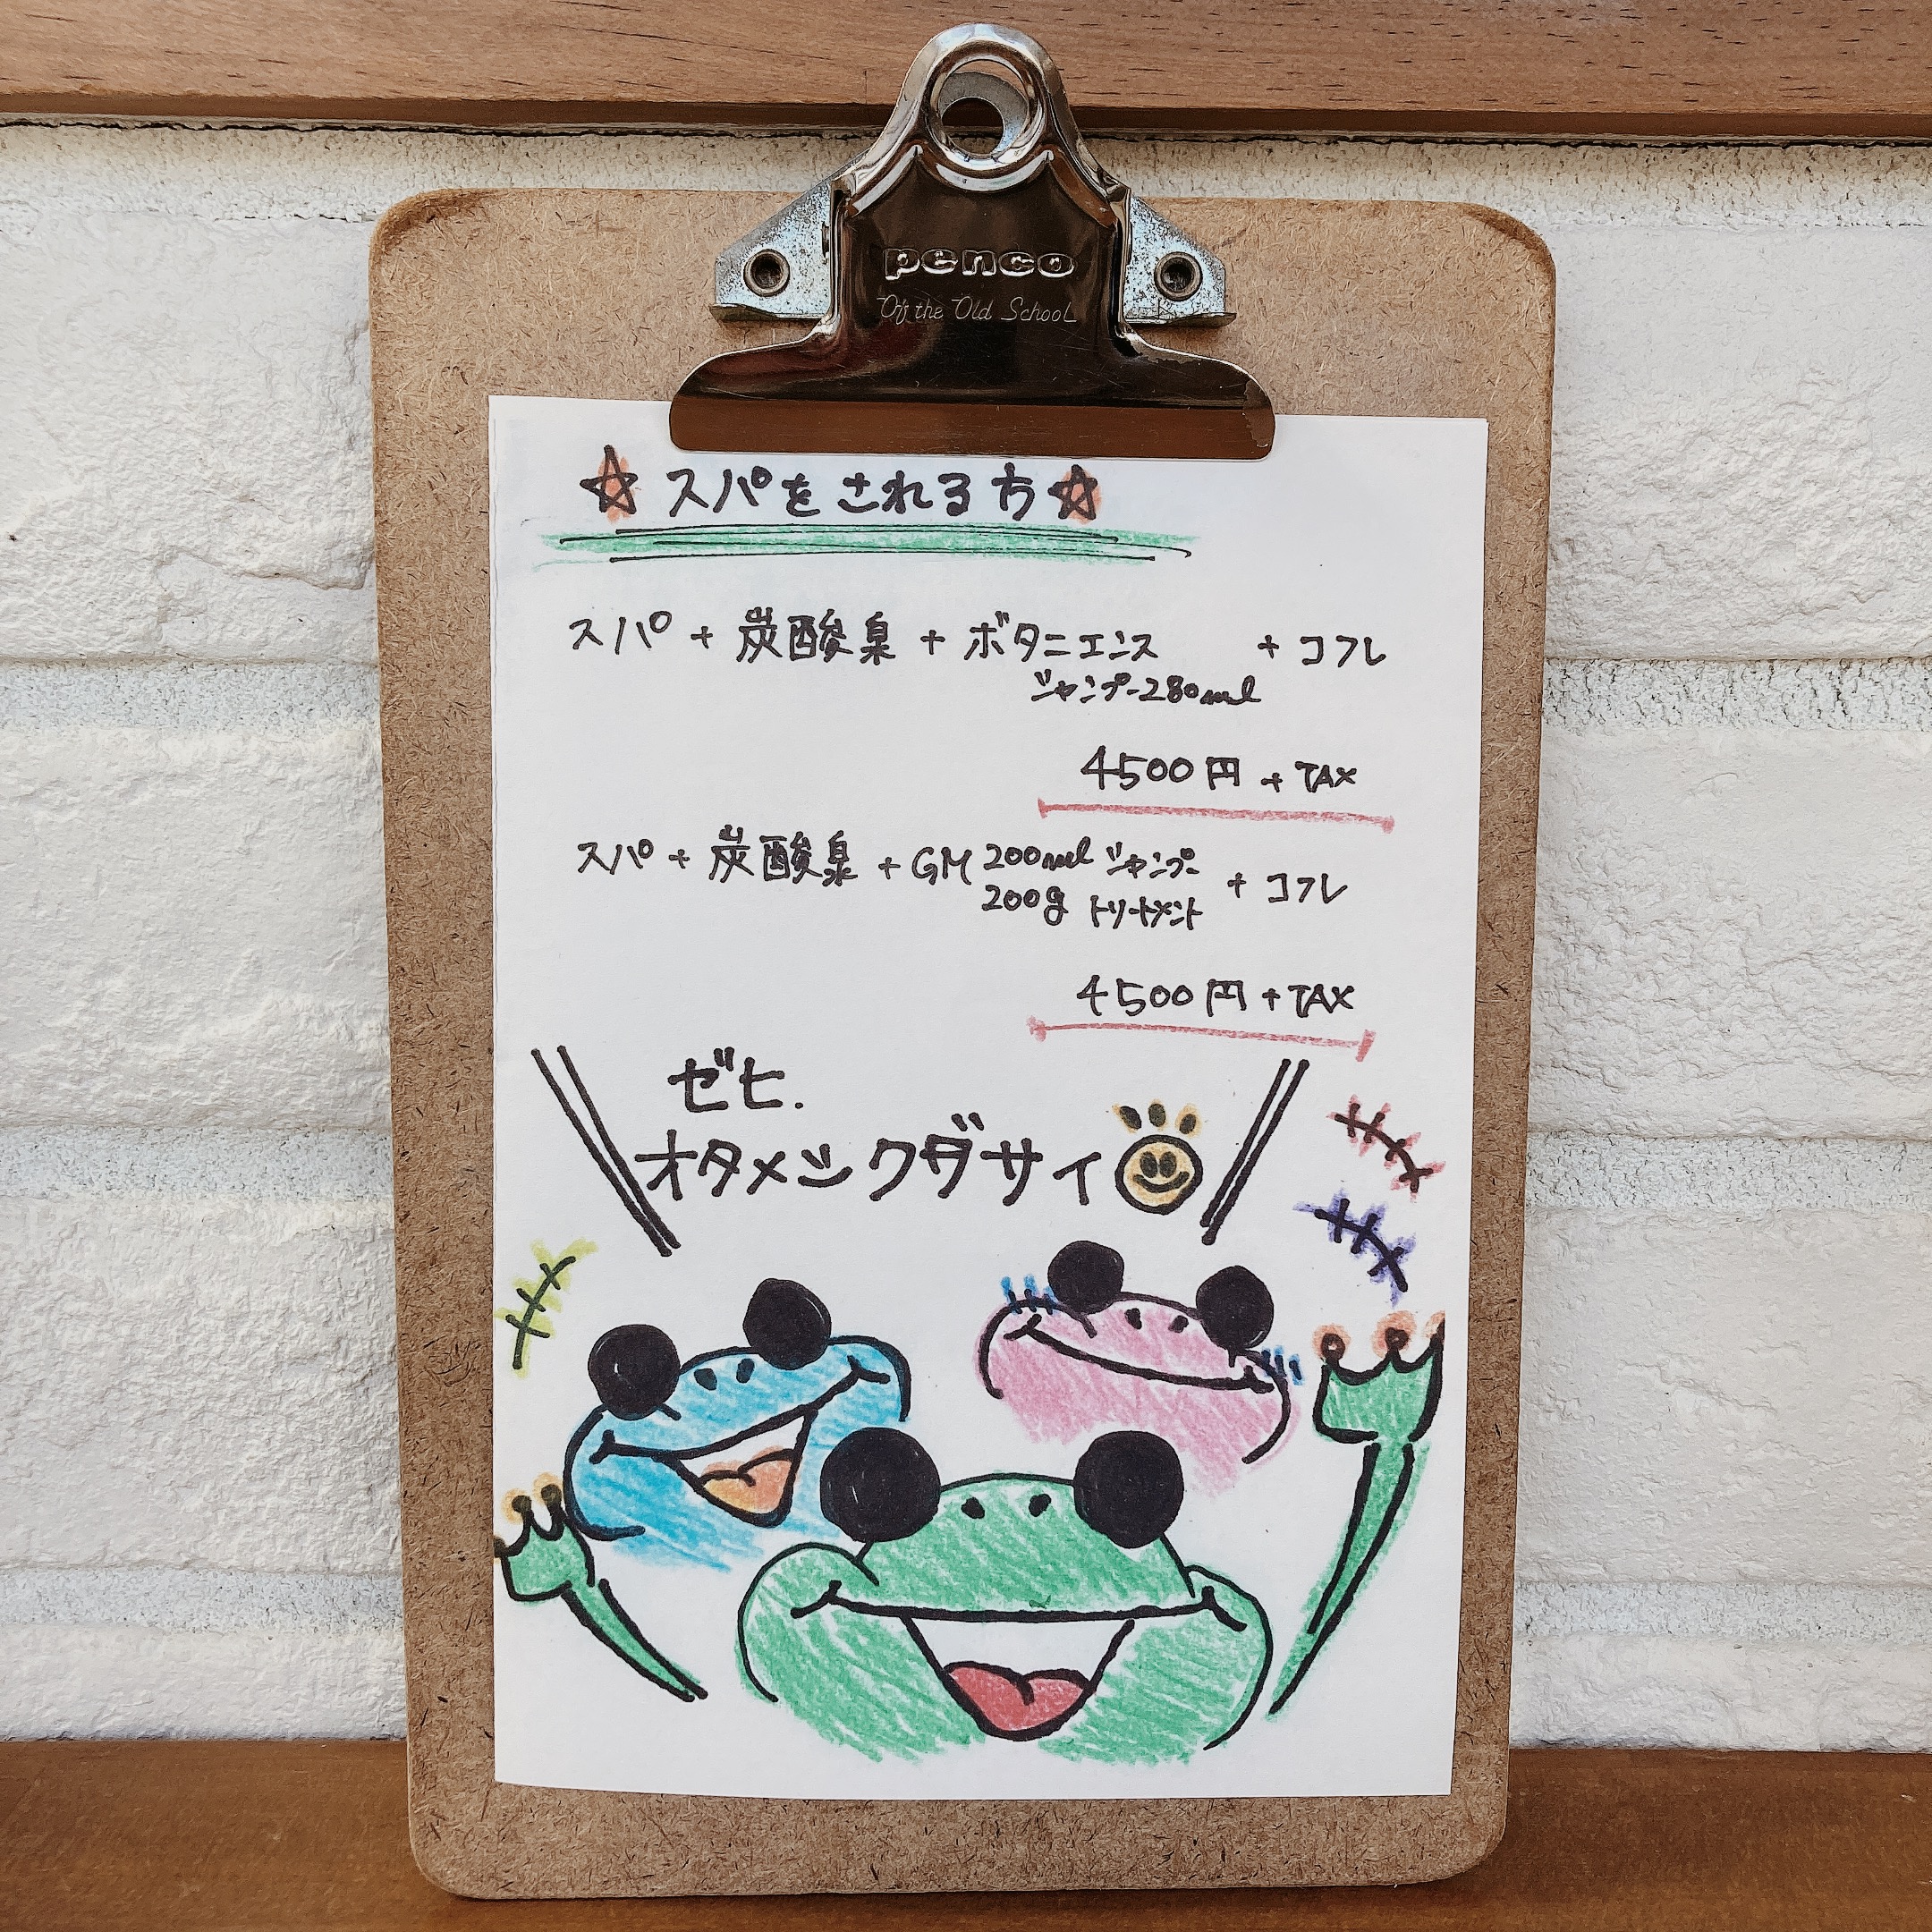 penco
Of the Old School
☆スパをされる方☆
スパ + 炭酸泉 + ボタニエンス + コフレ
シャンプー280ml
4500円 + TAX
スパ + 炭酸泉 + GM 200ml シャンプー + コフレ
200g トリートメント
4500円 + TAX
ゼヒ.
オタメシクダサイ